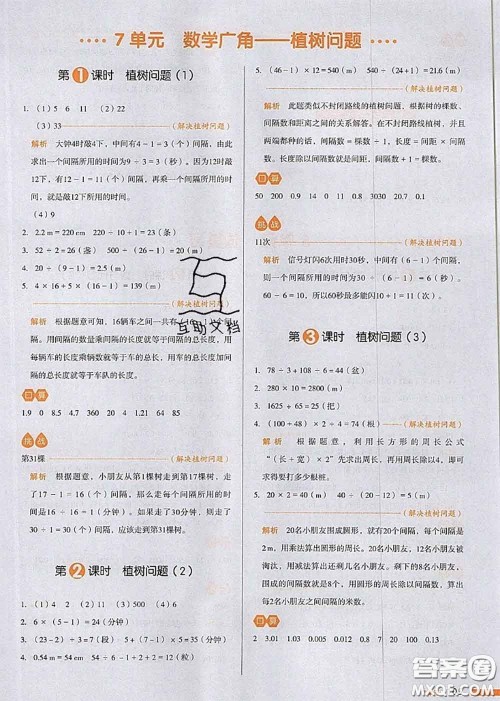 7 单元 数学广角——植树问题
第1课时 植树问题(1)
1. (1)5 6 11 (2)22
(3)33 (解决植树问题)
解析 大钟4时敲4下,中间有4-1=3(个)间隔,由此
求出一个间隔所用的时间为9÷3=3(秒)。因为12时敲
12下,有12-1=11(个)间隔,再乘一个间隔所用的时
间,就是敲12下所用的时间。
(4)9
2. 2.2 m=220 cm 220÷10+1=23(条)
3. 52÷2=26(盏) 500÷(26-1)=20(m)
4. 20÷(9-1)=2.5(m)
5. 4×16+5×(16-1)=139(m)
(解决植树问题)
解析 根据题意可知,16辆车之间一共有(16-1)个间
隔。用间隔的数量乘间隔的长度就等于间隔的总长度,用
每辆车的长度乘辆数就等于车的总长度,用车的总长度加间隔
的总长度就等于车队的长度。
口算
1.9 0 8.5 4.7 360 20 4 14.85 1.021
挑战
第31棵 (解决植树问题)
解析 根据题意,小朋友从第1棵树走到第17棵树,走了
17-1=16(个)间隔,那么走每个间隔所用的时
间是16÷16=1(分钟)。如果走了30分钟,则走了
30÷1=30(个)间隔,应该走到第31棵树。
第2课时 植树问题(2)
1. (1)40 (2)12 (3)500 (4)6
2. 6×(5-1)=24(分钟)
3. (23-2)÷3=7(段) 5×(7-1)+5=35(分钟)
4. 0.54 m=54 cm 54÷(2+1)-1=17(粒)
5. (46-1)×12=540(m) 540÷(24+1)=21.6(m)
(解决植树问题)
解析 此题类似不封闭路线的植树问题,根据树的棵数、
间隔数和距离之间的关系解答。在不封闭路线中,并且
两端都种的话,间隔数=棵数-1,长度=间距×间隔
数。长度除以间隔数就是间距,间隔数+1=棵数。
口算
50 200 0.9 14 0 11 0.01 0.038 30 0.5
挑战
11次 (解决植树问题)
解析 信号灯闪6次用时30秒,中间有(6-1)个间隔,
则一个间隔所用的时间为30÷(6-1)=6(秒),
所以60秒最多能闪10+1=11(次)。
第3课时 植树问题(3)
1. 78÷3=108÷6=44(盆)
2. 280×10=2800(m)
3. 1625÷65=25(棵)
4. (100+48)×2÷4=74(根) (解决植树问题)
解析 根据题意,利用长方形的周长公式
“(长+宽)×2”先求出周长,再用周长除以4,即可
求得要打多少根桩。
5. 20×2=40(m)
(解决植树问题)
解析 20名小朋友围成圆形,就有20个间隔,每个间隔是
2m,用乘法算出圆形的周长。20名小朋友,12人被
淘汰,用减法算出还剩几名小朋友。剩8名小朋友,
围成的间隔数就是8个,用圆形的周长除以间隔数,
就等于每个间隔的米数。
口算
2 3.01 1.03 0.005 0.012 0.8 7 20 100 0.13
互助文档
答案圈
MXQE.COM